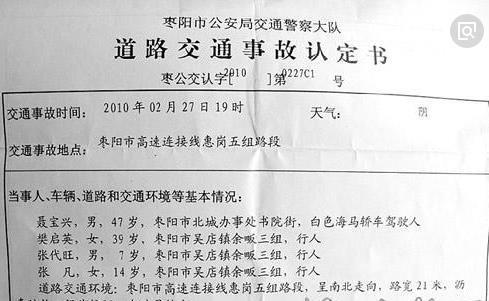 枣阳市公安局交通警察大队
道路交通事故认定书
枣公交认字[2010]第0227C1号
交通事故时间: 2010年02月27日19时 天气: 阴
交通事故地点: 枣阳市高速连接线惠岗五组路段
当事人、车辆、道路和交通环境等基本情况:
聂宝兴,男,47岁,枣阳市北城办事处书院街,白色海马轿车驾驶人
樊启英,女,39岁,枣阳市吴店镇余畈三组,行人
张代旺,男,7岁,枣阳市吴店镇余畈三组,行人
张凡,女,14岁,枣阳市吴店镇余畈三组,行人
道路交通环境:枣阳市高速连接线惠岗五组路段,呈南北走向,路宽21米,沥